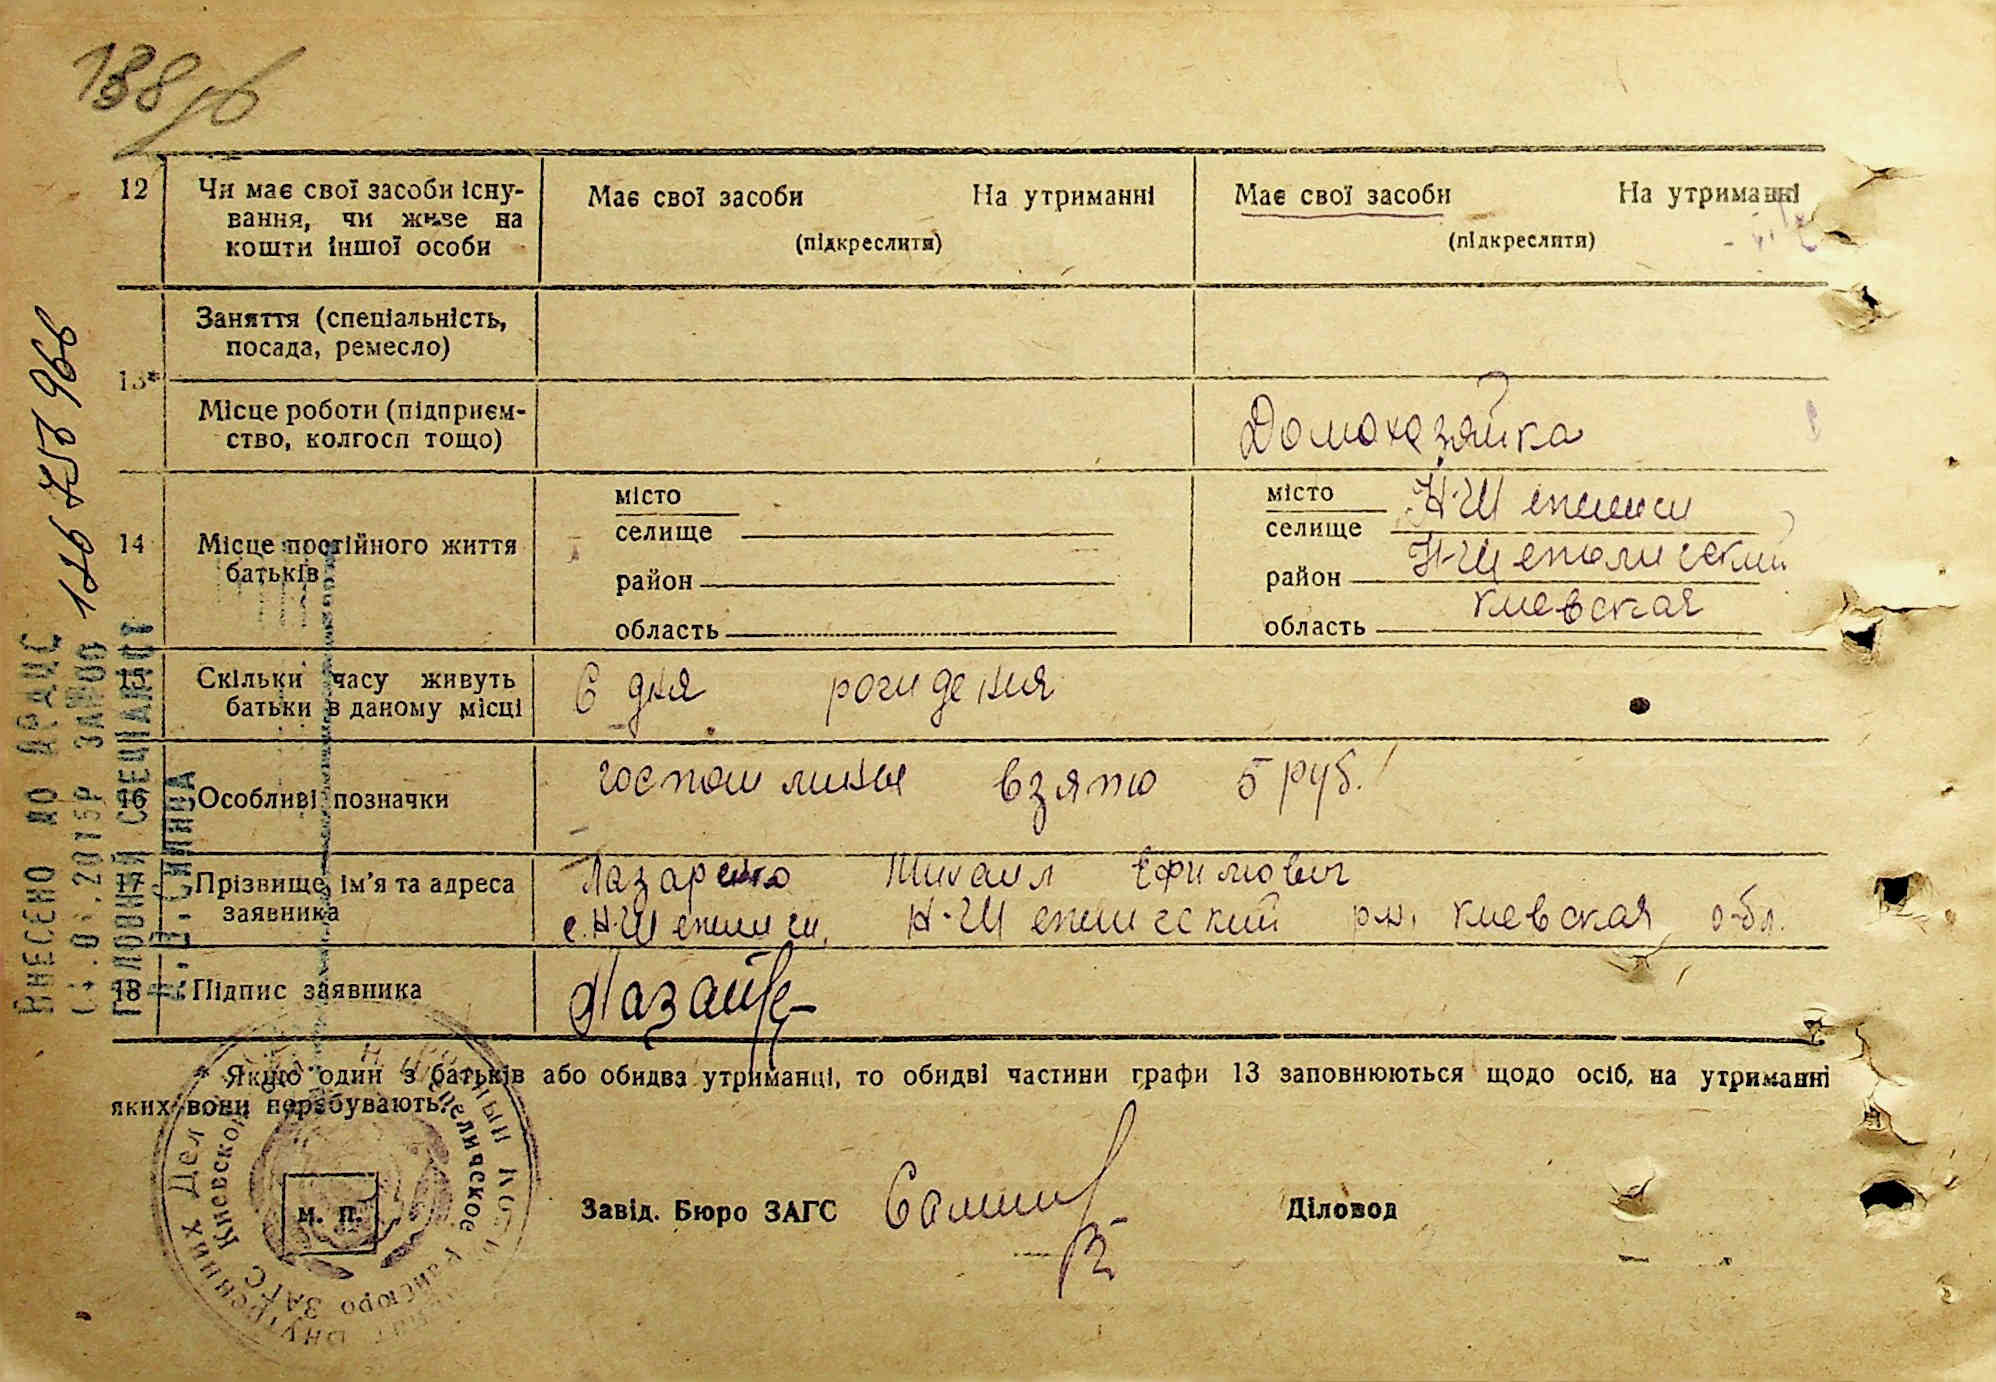 138 зв
12 Чи має свої засоби існу- Має свої засоби На утриманні Має свої засоби На утриманні
вання, чи живе на (підкреслити) (підкреслити)
кошти іншої особи
Заняття (спеціальність,
посада, ремесло)
13*
Місце роботи (підприєм- Домохазяйка
ство, колгосп тощо)
місто місто Н-Шепеличи
селище селище
14 Місце постійного життя Н-Шепелический
батьків район район
Киевская
область область
15 Скільки часу живуть С дня рождения
батьки в даному місці
16 Особливі позначки госпошлина взято 5 руб.
17 Прізвище, ім'я та адреса Лазаренко Михаил Ефимович
заявника с. Н-Шепеличи, Н-Шепелический р-н. Киевская обл.
18 Підпис заявника
* Якщо один з батьків або обидва утриманці, то обидві частини графи 13 заповнюються щодо осіб, на утриманні
яких вони перебувають.
Завід. Бюро ЗАГС Діловод
м. п.
Внутренних Дел
Киевской
Шепеличское
бюро ЗАГС
ВНЕСЕНО ДО ДРАЦС
2015Р ЗА №00 126 753 966
ГОЛОВНИЙ СПЕЦІАЛІСТ